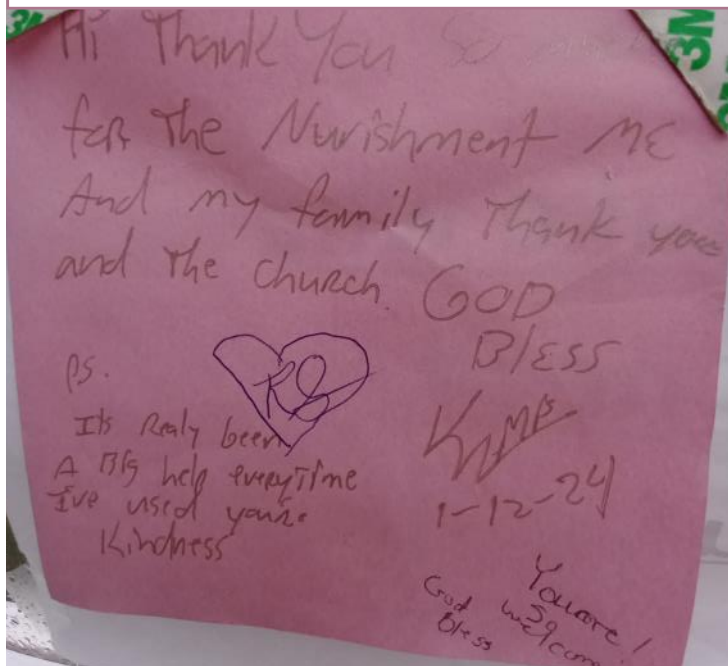 3M
3M
Hi Thank You So
for The Nurishment ME
And my family Thank you
and The church. GOD
Bless
Ps.
Its Realy been
A Big help everyTime
I've used your
Kindness
1-12-24
You are!
So
welcome
God
Bless